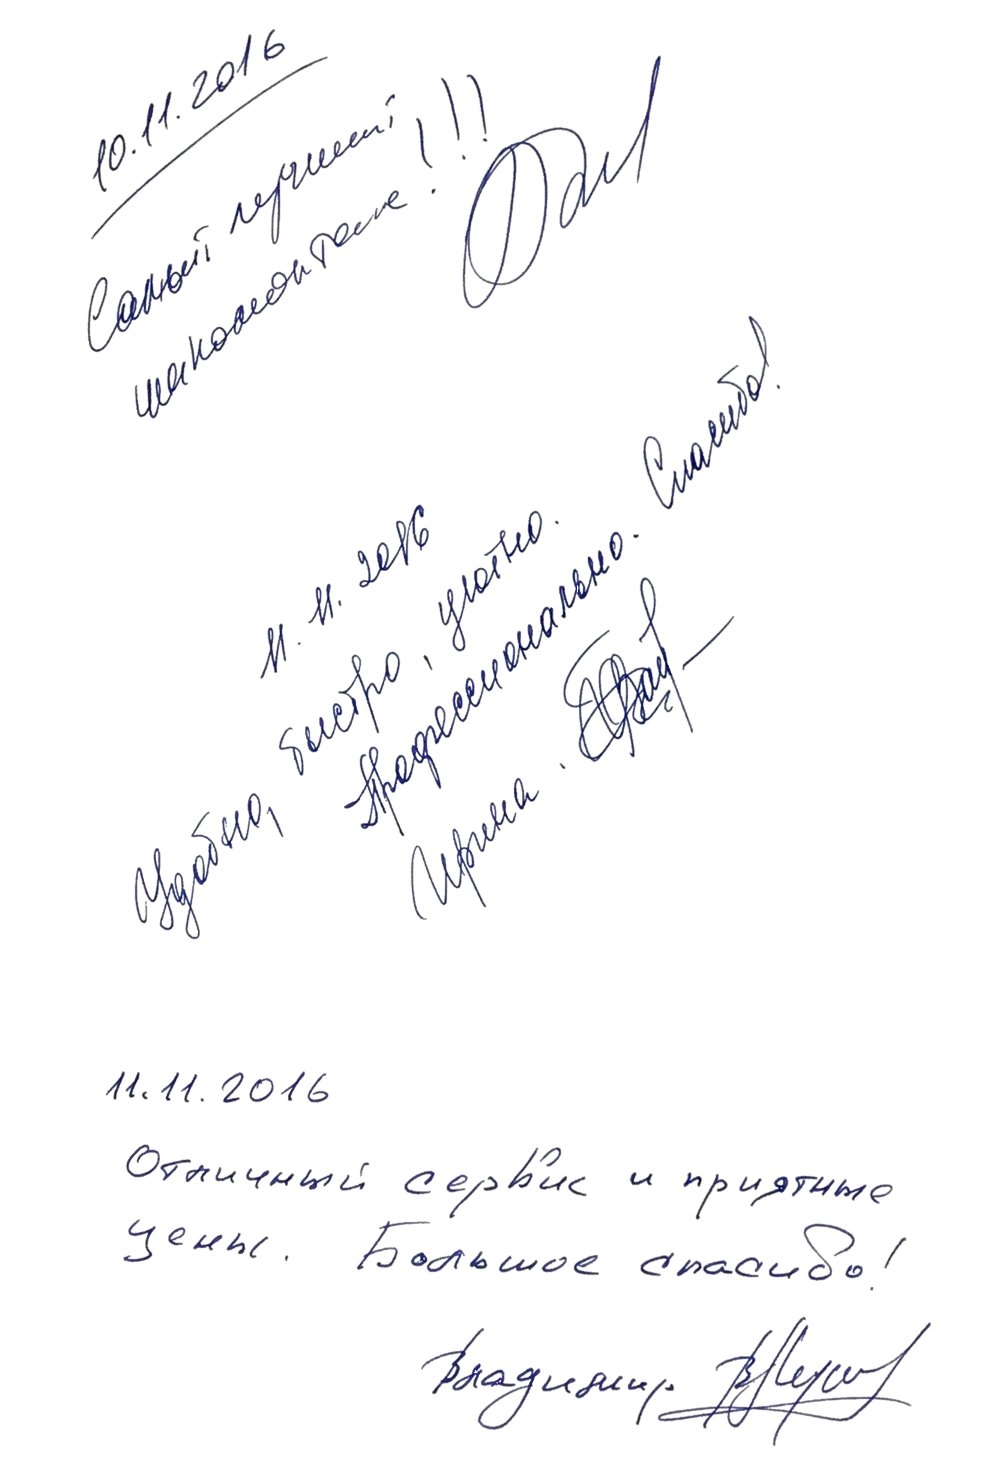 10.11.2016
Самый лучший
шиномонтаж!!!
11.11.2016
Удобно, быстро, уютно.
Профессионально. Спасибо!
Ирина.
11.11.2016
Отличный сервис и приятные
цены. Большое спасибо!
Владимир